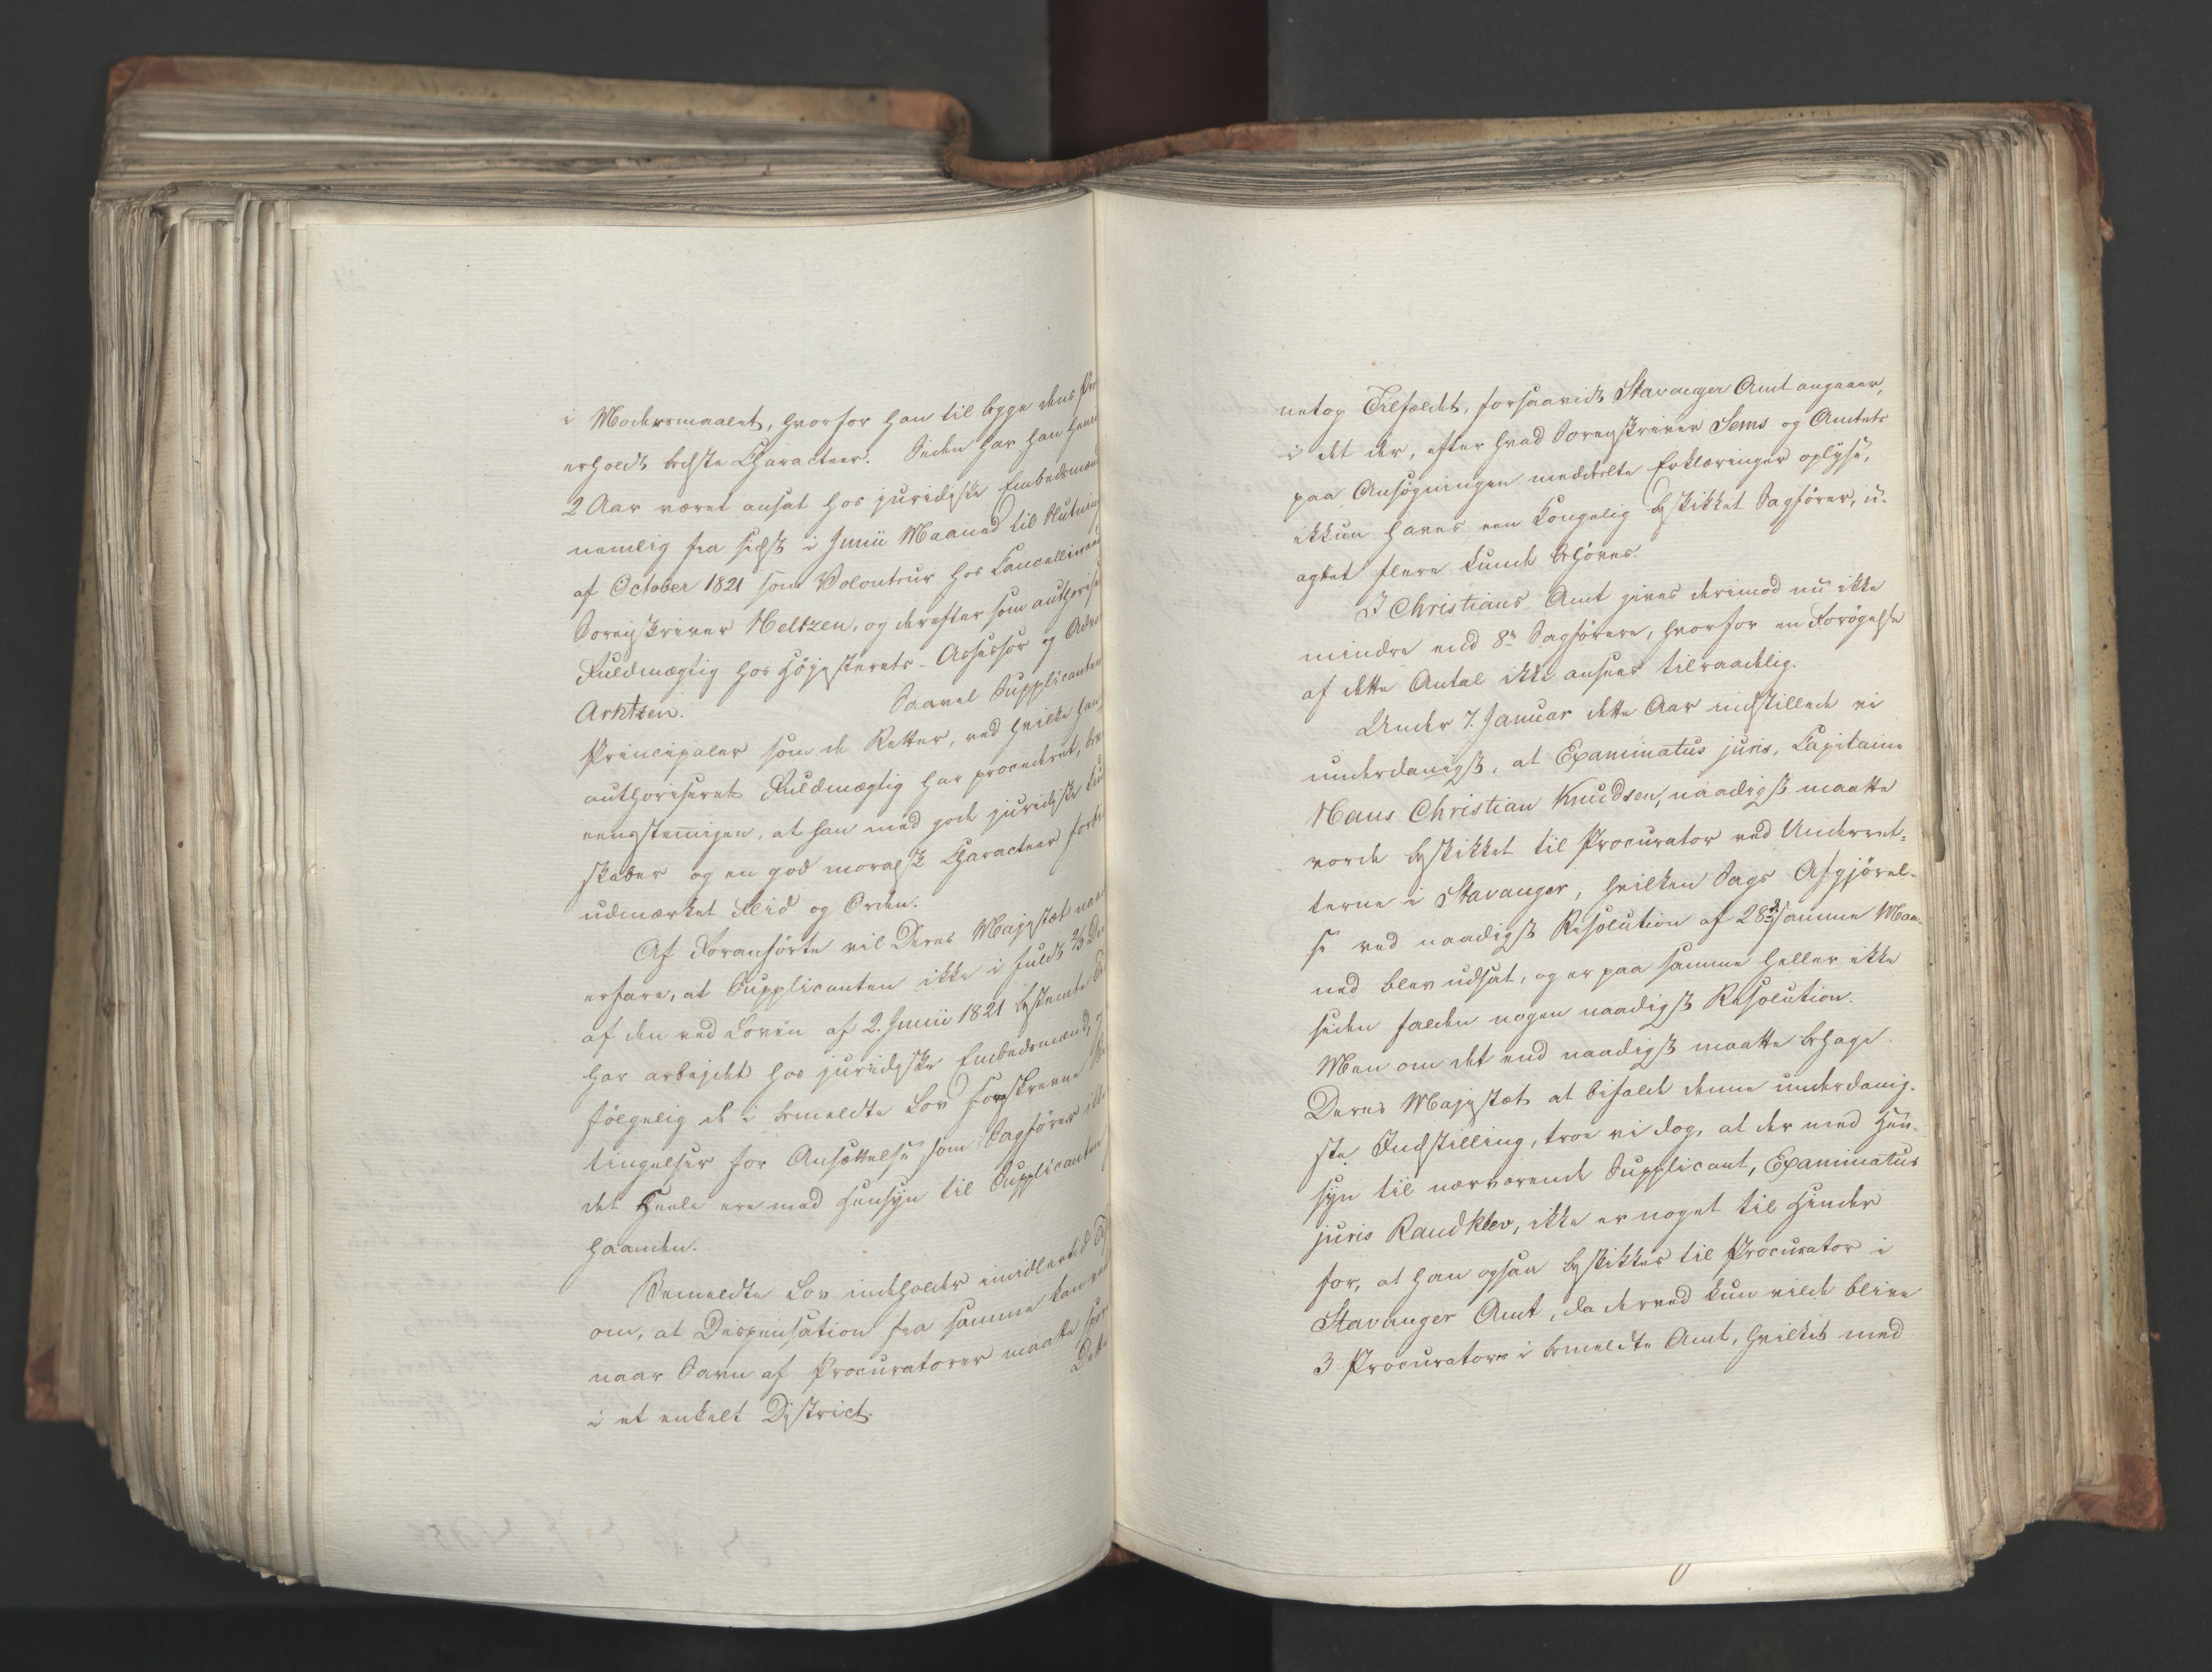 i Modersmaalet, hvorfor han til begge dens
erholdt bedste Characteer. Siden har han
2 Aar været ansat hos juridiske Embedsmænd
nemlig fra sidst i Junii Maaned til Slutning
af October 1821 som Volonteur hos Cancelliraad
Sorenskriver Neltzen, og derefter som authorise
Fuldmægtig hos Højesterets-Assessor og
Arntzen. Saavel Supplicanten
Principaler som de Retter, ved hvilke han
authoriseret Fuldmægtig har procederet,
eenstemmigen, at han med gode juridiske
skaber og en god moralsk Characteer
udmærket Flid og Orden.
Af Foranførte vil Deres Majestæt
erfare, at Supplicanten ikke i fuldt 2/3 De
af den ved Loven af 2. Junii 1821 bestemte
har arbejdet hos juridiske Embedsmænd,
følgelig de i bemeldte Lov foreskrevne
tingelser for Ansættelse som Sagfører
det Heele ere med Hensyn til Supplicanten
haanden.
Bemeldte Lov indeholder imidlertid
om, at Dispensation fra samme kan
naar Savn af Procuratorer maatte
i et enkelt District. Dette
netop Tilfældet, forsaavidt Stavanger Amt angaaer,
i det der, efter hvad Sorenskriver Sems og Amtets
paa Ansøgningen meddeelte Erklæringer oplyse,
ikkun haves een Kongelig beskikket Sagfører, u-
agtet flere kunde behøves.
I Christians Amt gives derimod nu ikke
mindre end 8te Sagførere, hvorfor en Forøgelse
af dette Antal ikke ansees tilraadelig.
Under 7. Januar dette Aar indstillede vi
underdanigst, at Examinatus juris, Capitaine
Hans Christian Knudsen, naadigst maatte
vorde beskikket til Procurator ved Underret-
terne i Stavanger, hvilken Sags Afgjørel-
se ved naadigst Resolution af 28de samme Maa-
ned blev udsat, og er paa samme heller ikke
siden falden nogen naadigst Resolution.
Men om det end naadigst maatte behage
Deres Majestæt at bifalde denne underdanig-
ste Indstilling, troe vi dog, at der med Hen-
syn til nærværende Supplicant, Examinatus
juris Randklev, ikke er noget til Hinder
for, at han ogsaa beskikkes til Procurator i
Stavanger Amt, da derved kun vilde blive
3 Procuratorer i bemeldte Amt, hvilket med